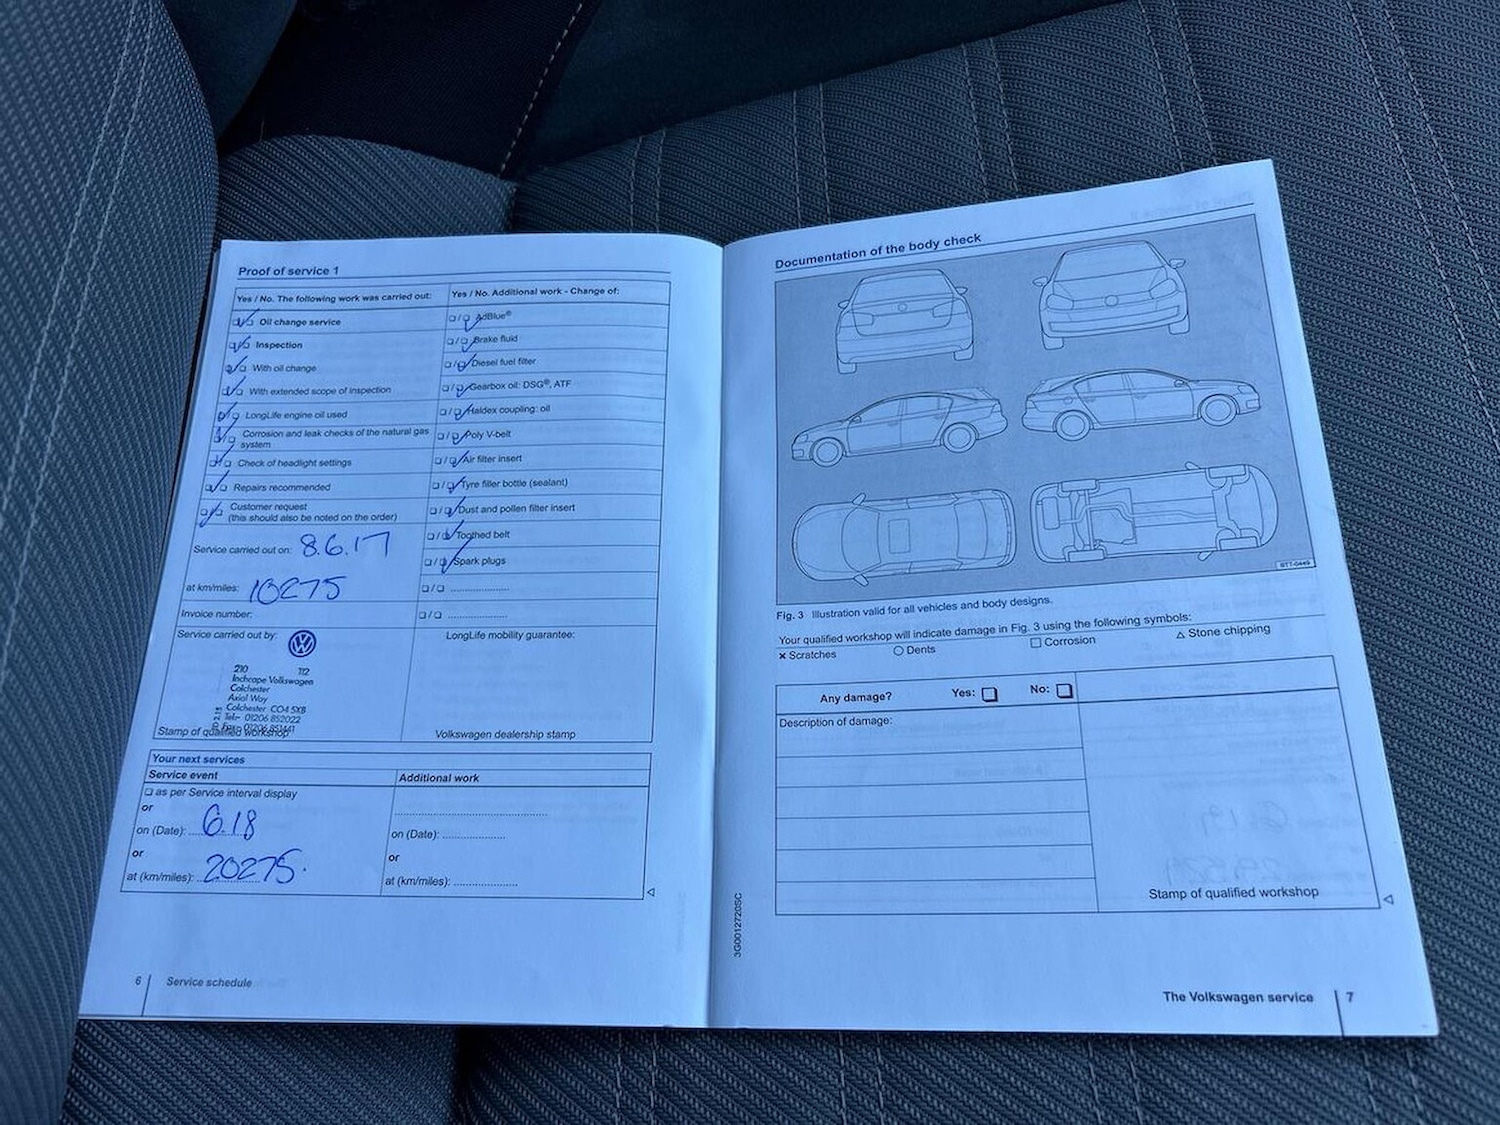 Proof of service 1
Yes / No. The following work was carried out:
Oil change service
Inspection
With oil change
With extended scope of inspection
LongLife engine oil used
Corrosion and leak checks of the natural gas
system
Check of headlight settings
Repairs recommended
Customer request
(this should also be noted on the order)
Service carried out on: 8.6.17
at km/miles: 10275
Invoice number:
Service carried out by:
210 112
Inchcape Volkswagen
Colchester
Axial Way
Colchester CO4 5XB
Tel:- 01206 852022
Stamp of qualified workshop
Yes / No. Additional work - Change of:
AdBlue®
Brake fluid
Diesel fuel filter
Gearbox oil: DSG®, ATF
Haldex coupling: oil
Poly V-belt
Air filter insert
Tyre filler bottle (sealant)
Dust and pollen filter insert
Toothed belt
Spark plugs
LongLife mobility guarantee:
Volkswagen dealership stamp
Your next services
Service event
as per Service interval display
or
on (Date): 6.18
or
at (km/miles): 20275.
Additional work
on (Date):
or
at (km/miles):
6 Service schedule
Documentation of the body check
BTT-0449
Fig. 3 Illustration valid for all vehicles and body designs.
Your qualified workshop will indicate damage in Fig. 3 using the following symbols:
× Scratches ○ Dents □ Corrosion △ Stone chipping
Any damage? Yes: No:
Description of damage:
Stamp of qualified workshop
3G0012720SC
The Volkswagen service 7